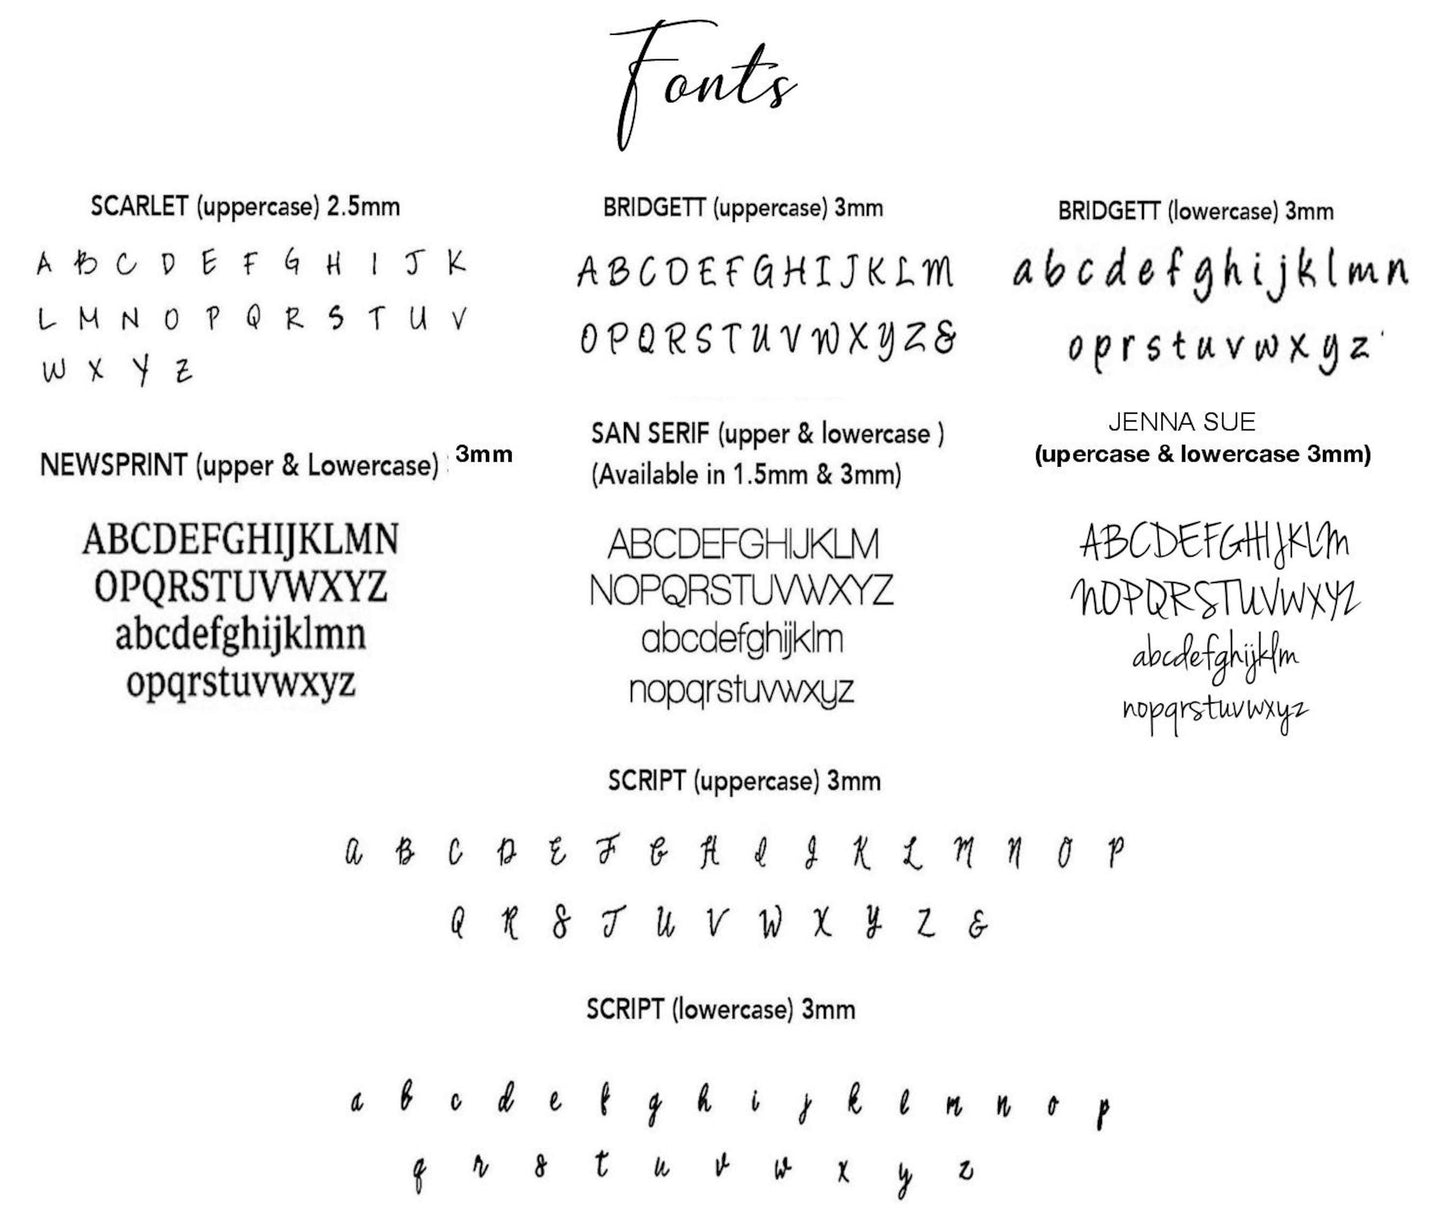 Fonts
SCARLET (uppercase) 2.5mm
A B C D E F G H I J K
L M N O P Q R S T U V
W X Y Z
BRIDGETT (uppercase) 3mm
A B C D E F G H I J K L M
O P Q R S T U V W X Y Z &
BRIDGETT (lowercase) 3mm
a b c d e f g h i j k l m n
o p r s t u v w x y z '
NEWSPRINT (upper & Lowercase) 3mm
ABCDEFGHIJKLMN
OPQRSTUVWXYZ
abcdefghijklmn
opqrstuvwxyz
SAN SERIF (upper & lowercase )
(Available in 1.5mm & 3mm)
ABCDEFGHIJKLM
NOPQRSTUVWXYZ
abcdefghijklm
nopqrstuvwxyz
JENNA SUE
(upercase & lowercase 3mm)
ABCDEFGHIJKLM
NOPQRSTUVWXYZ
abcdefghijklm
nopqrstuvwxyz
SCRIPT (uppercase) 3mm
A B C D E F G H I J K L M N O P
Q R S T U V W X Y Z &
SCRIPT (lowercase) 3mm
a b c d e f g h i j k l m n o p
q r s t u v w x y z